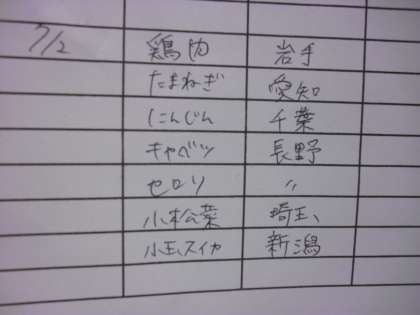 7/2 鶏肉 岩手
たまねぎ 愛知
にんじん 千葉
キャベツ 長野
セロリ 〃
小松菜 埼玉、
小玉スイカ 新潟